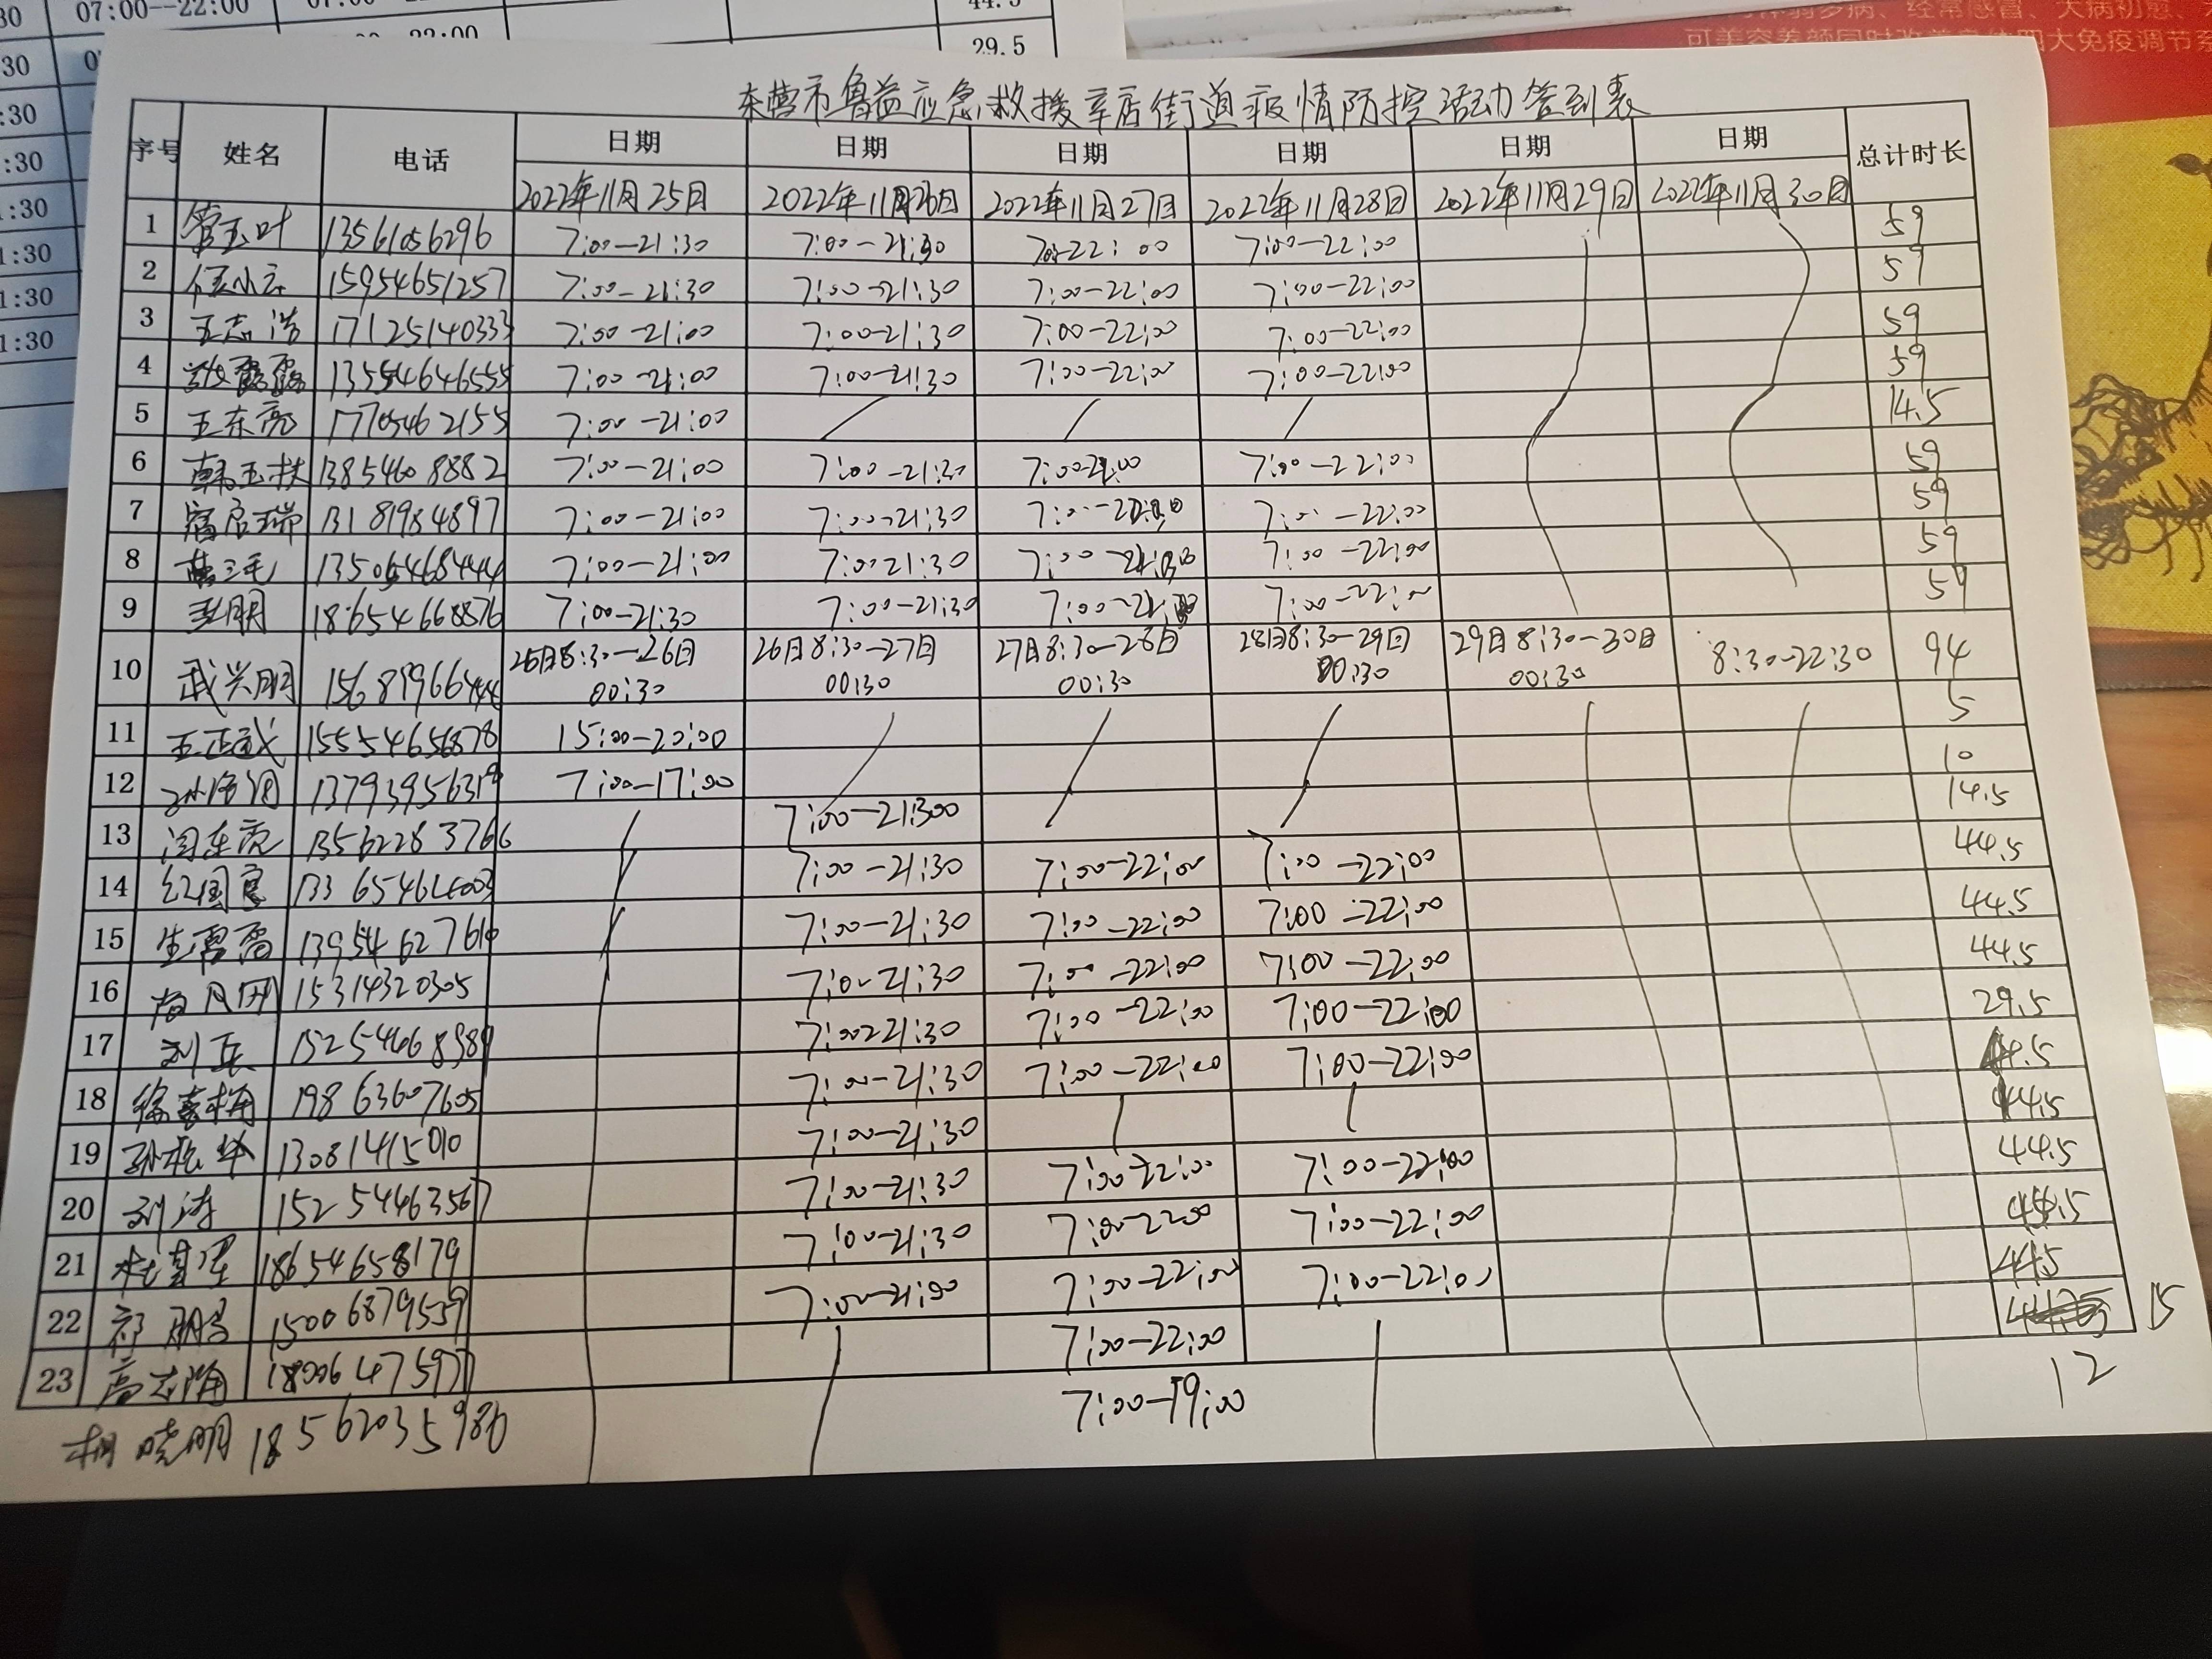 07:00--22:00
44.5
29.5
经常感冒、大病初愈、
四大免疫调节系
东营市鲁益应急救援辛店街道疫情防控活动签到表
序号 姓名 电话 日期 日期 日期 日期 日期 日期 总计时长
2022年11月25日 2022年11月26日 2022年11月27日 2022年11月28日 2022年11月29日 2022年11月30日
1 管玉叶 13561056296 7:00-21:30 7:00-21:30 7:00-22:00 7:00-22:00 59
2 15954651257 7:00-21:30 7:00-21:30 7:00-22:00 7:00-22:00 59
3 王志浩 17125140333 7:00-21:00 7:00-21:30 7:00-22:00 7:00-22:00 59
4 13554646555 7:00-21:00 7:00-21:30 7:00-22:00 7:00-22:00 59
5 王东亮 17705462155 7:00-21:00 14.5
6 韩玉扶 13854608882 7:00-21:00 7:00-21:30 7:00-22:00 59
7 13181984897 7:00-21:00 7:00-21:30 7:00-22:00 59
8 13506468444 7:00-21:00 7:00 21:30 7:00-22:00 59
9 18654668876 7:00-21:30 7:00-21:30 7:00-22:00 59
10 武兴朋 15681996644 25日8:30-26日 26日8:30-27日 27日8:30-28日 28日8:30-29日 29日8:30-30日 8:30-22:30 94
00:30 00:30 00:30 00:30 00:30
11 王正武 15554656878 15:00-20:00 5
12 13793956319 7:00-17:00 10
13 闫东亮 13562283766 7:00-21:300 14.5
14 7:00-21:30 7:00-22:00 7:00-22:00 44.5
15 生雷雷 13954627610 7:00-21:30 7:00-22:00 7:00-22:00 44.5
16 15314320305 7:00-21:30 7:00-22:00 7:00-22:00 44.5
17 刘兵 15254468989 7:00-21:30 7:00-22:00 7:00-22:00 29.5
18 19863607605 7:00-21:30 7:00-22:00 7:00-22:00 44.5
19 13081415010 7:00-21:30 44.5
20 刘涛 15254463567 7:00-21:30 7:00-22:00 7:00-22:00 44.5
21 18654658179 7:00-21:30 7:00-2200 7:00-22:00
22 15006879559 7:00-21:00 7:00-22:00 7:00-22:00 44.5
23 18006475977 7:00-22:00 15
相晓明 18562035980 7:00-19:00 12